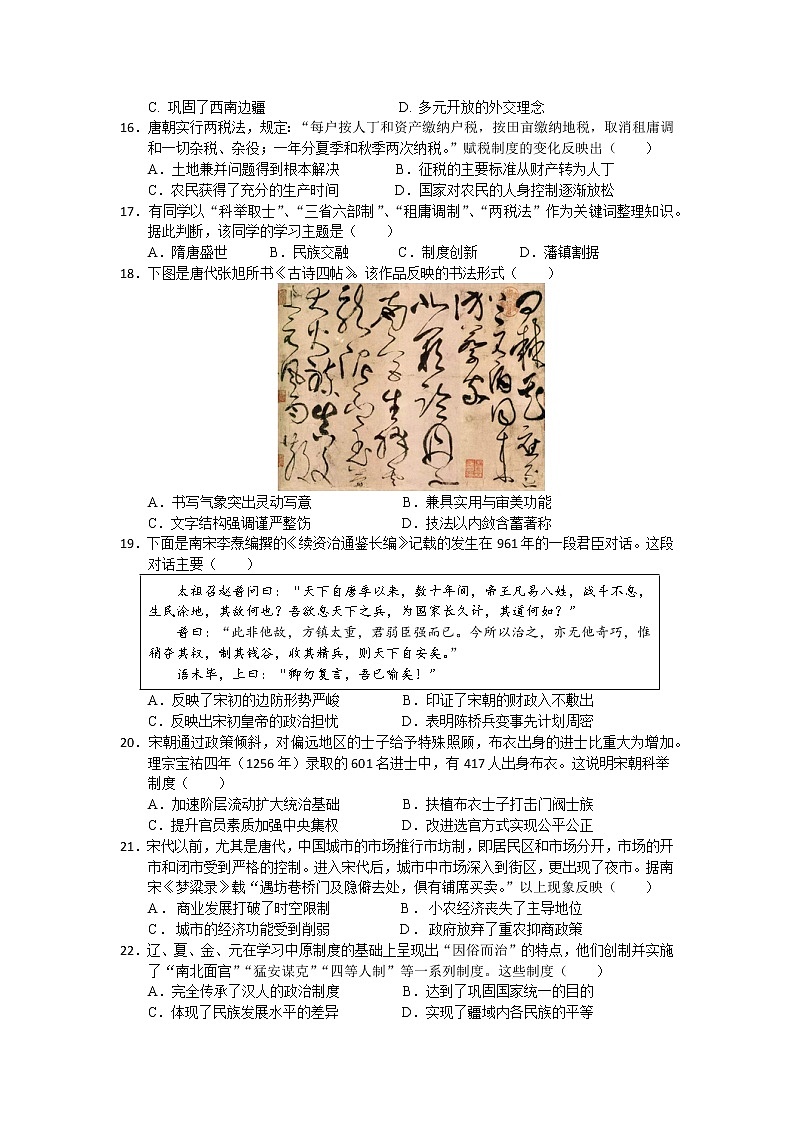 C. 巩固了西南边疆 D. 多元开放的外交理念
16．唐朝实行两税法，规定：“每户按人丁和资产缴纳户税，按田亩缴纳地税，取消租庸调
和一切杂税、杂役；一年分夏季和秋季两次纳税。”赋税制度的变化反映出（ ）
A．土地兼并问题得到根本解决 B．征税的主要标准从财产转为人丁
C．农民获得了充分的生产时间 D．国家对农民的人身控制逐渐放松
17．有同学以“科举取士”、“三省六部制”、“租庸调制”、“两税法”作为关键词整理知识。
据此判断，该同学的学习主题是（ ）
A．隋唐盛世 B．民族交融 C．制度创新 D．藩镇割据
18．下图是唐代张旭所书《古诗四帖》。该作品反映的书法形式（ ）
A．书写气象突出灵动写意 B．兼具实用与审美功能
C．文字结构强调谨严整饬 D．技法以内敛含蓄著称
19．下面是南宋李焘编撰的《续资治通鉴长编》记载的发生在 961 年的一段君臣对话。这段
对话主要（ ）
太祖召赵普问曰：“天下自唐季以来，数十年间，帝王凡易八姓，战斗不息，
生民涂地，其故何也？吾欲息天下之兵，为国家长久计，其道何如？”
普曰：“此非他故，方镇太重，君弱臣强而已。今所以治之，亦无他奇巧，惟
稍夺其权，制其钱谷，收其精兵，则天下自安矣。”
语未毕，上曰：“卿勿复言，吾已喻矣！”
A．反映了宋初的边防形势严峻 B．印证了宋朝的财政入不敷出
C．反映出宋初皇帝的政治担忧 D．表明陈桥兵变事先计划周密
20．宋朝通过政策倾斜，对偏远地区的士子给予特殊照顾，布衣出身的进士比重大为增加。
理宗宝祐四年（1256 年）录取的 601 名进士中，有 417 人出身布衣。这说明宋朝科举
制度（ ）
A．加速阶层流动扩大统治基础 B．扶植布衣士子打击门阀士族
C．提升官员素质加强中央集权 D．改进选官方式实现公平公正
21．宋代以前，尤其是唐代，中国城市的市场推行市坊制，即居民区和市场分开，市场的开
市和闭市受到严格的控制。进入宋代后，城市中市场深入到街区，更出现了夜市。据南
宋《梦粱录》载“遇坊巷桥门及隐僻去处，俱有铺席买卖。”以上现象反映（ ）
A． 商业发展打破了时空限制 B． 小农经济丧失了主导地位
C． 城市的经济功能受到削弱 D． 政府放弃了重农抑商政策
22．辽、夏、金、元在学习中原制度的基础上呈现出“因俗而治”的特点，他们创制并实施
了“南北面官”“猛安谋克”“四等人制”等一系列制度。这些制度（ ）
A．完全传承了汉人的政治制度 B．达到了巩固国家统一的目的
C．体现了民族发展水平的差异 D．实现了疆域内各民族的平等